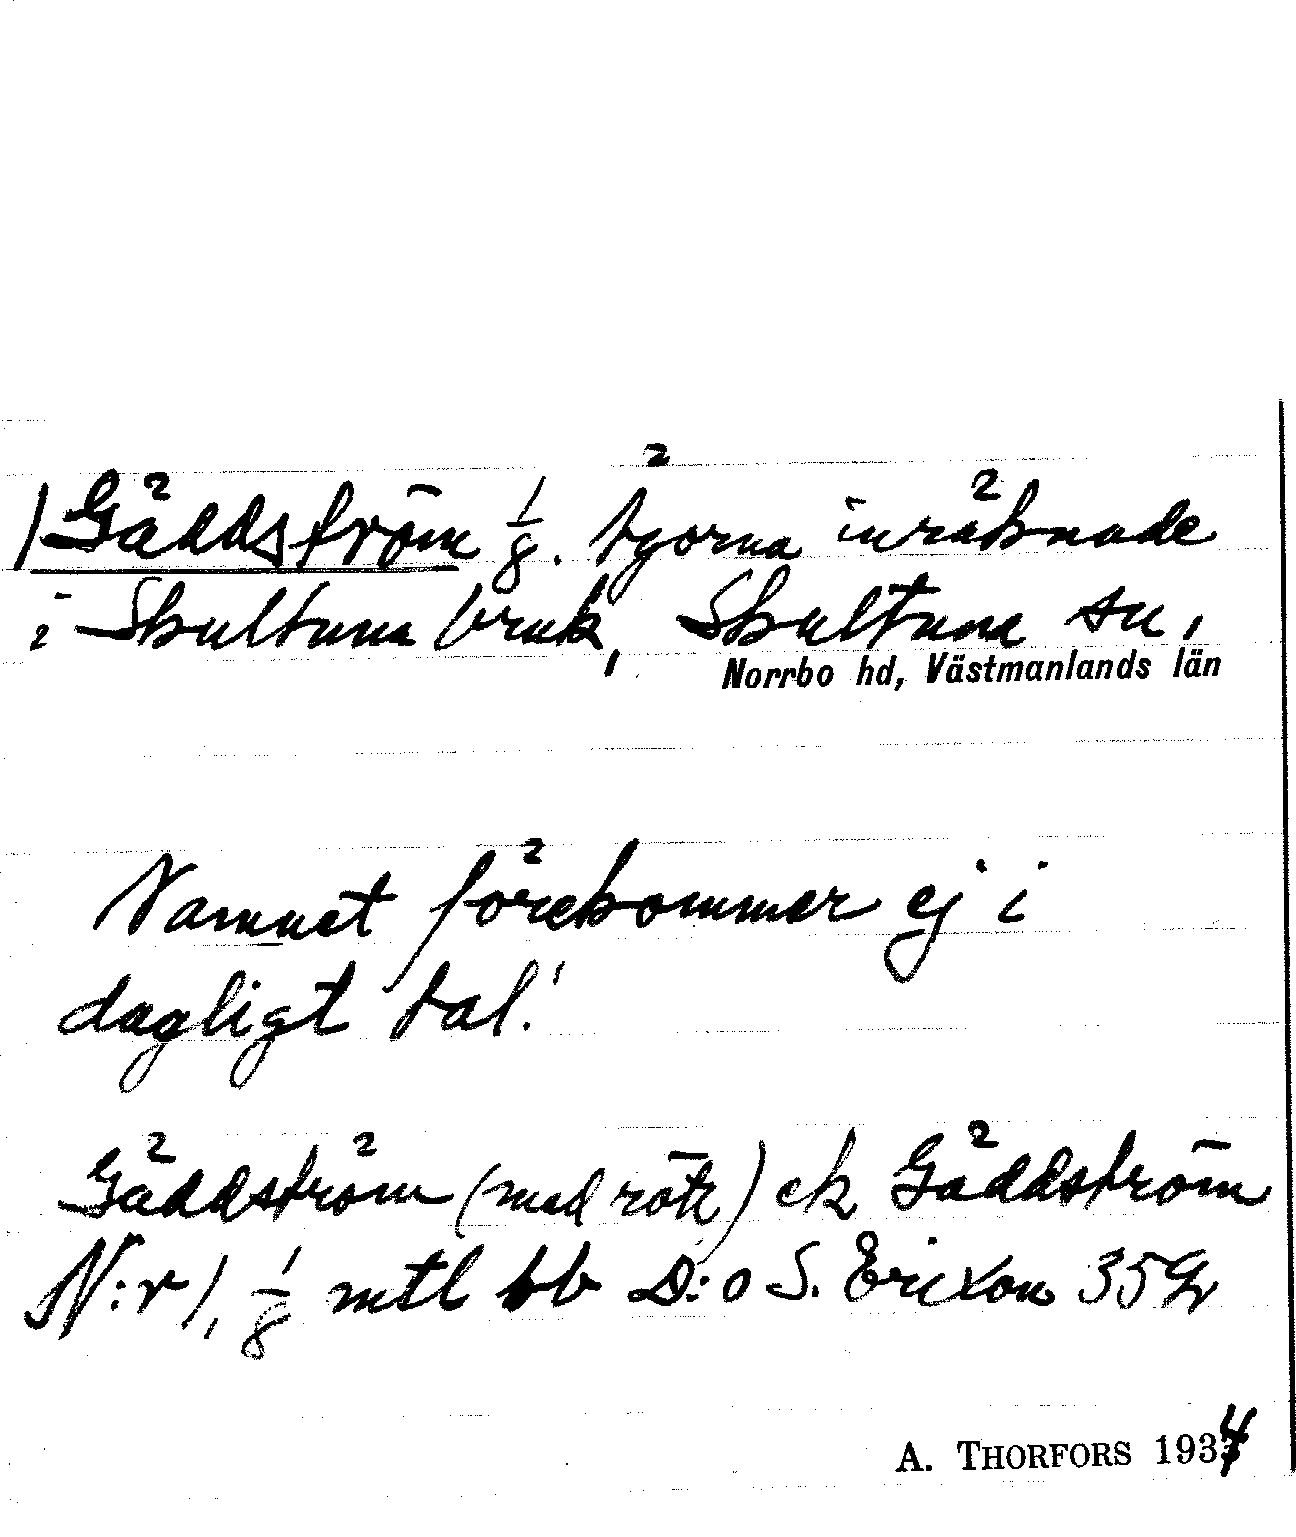 1 Gäddström 1/8. Ägorna inräknade
i Skultuna bruk, Skultuna sn,
Norrbo hd, Västmanlands län
Namnet förekommer ej i
dagligt tal!
Gäddström (med rätt) ek Gäddström
N:r 1, 1/8 mtl bb D:o S. Erixon 35
A. THORFORS 1934